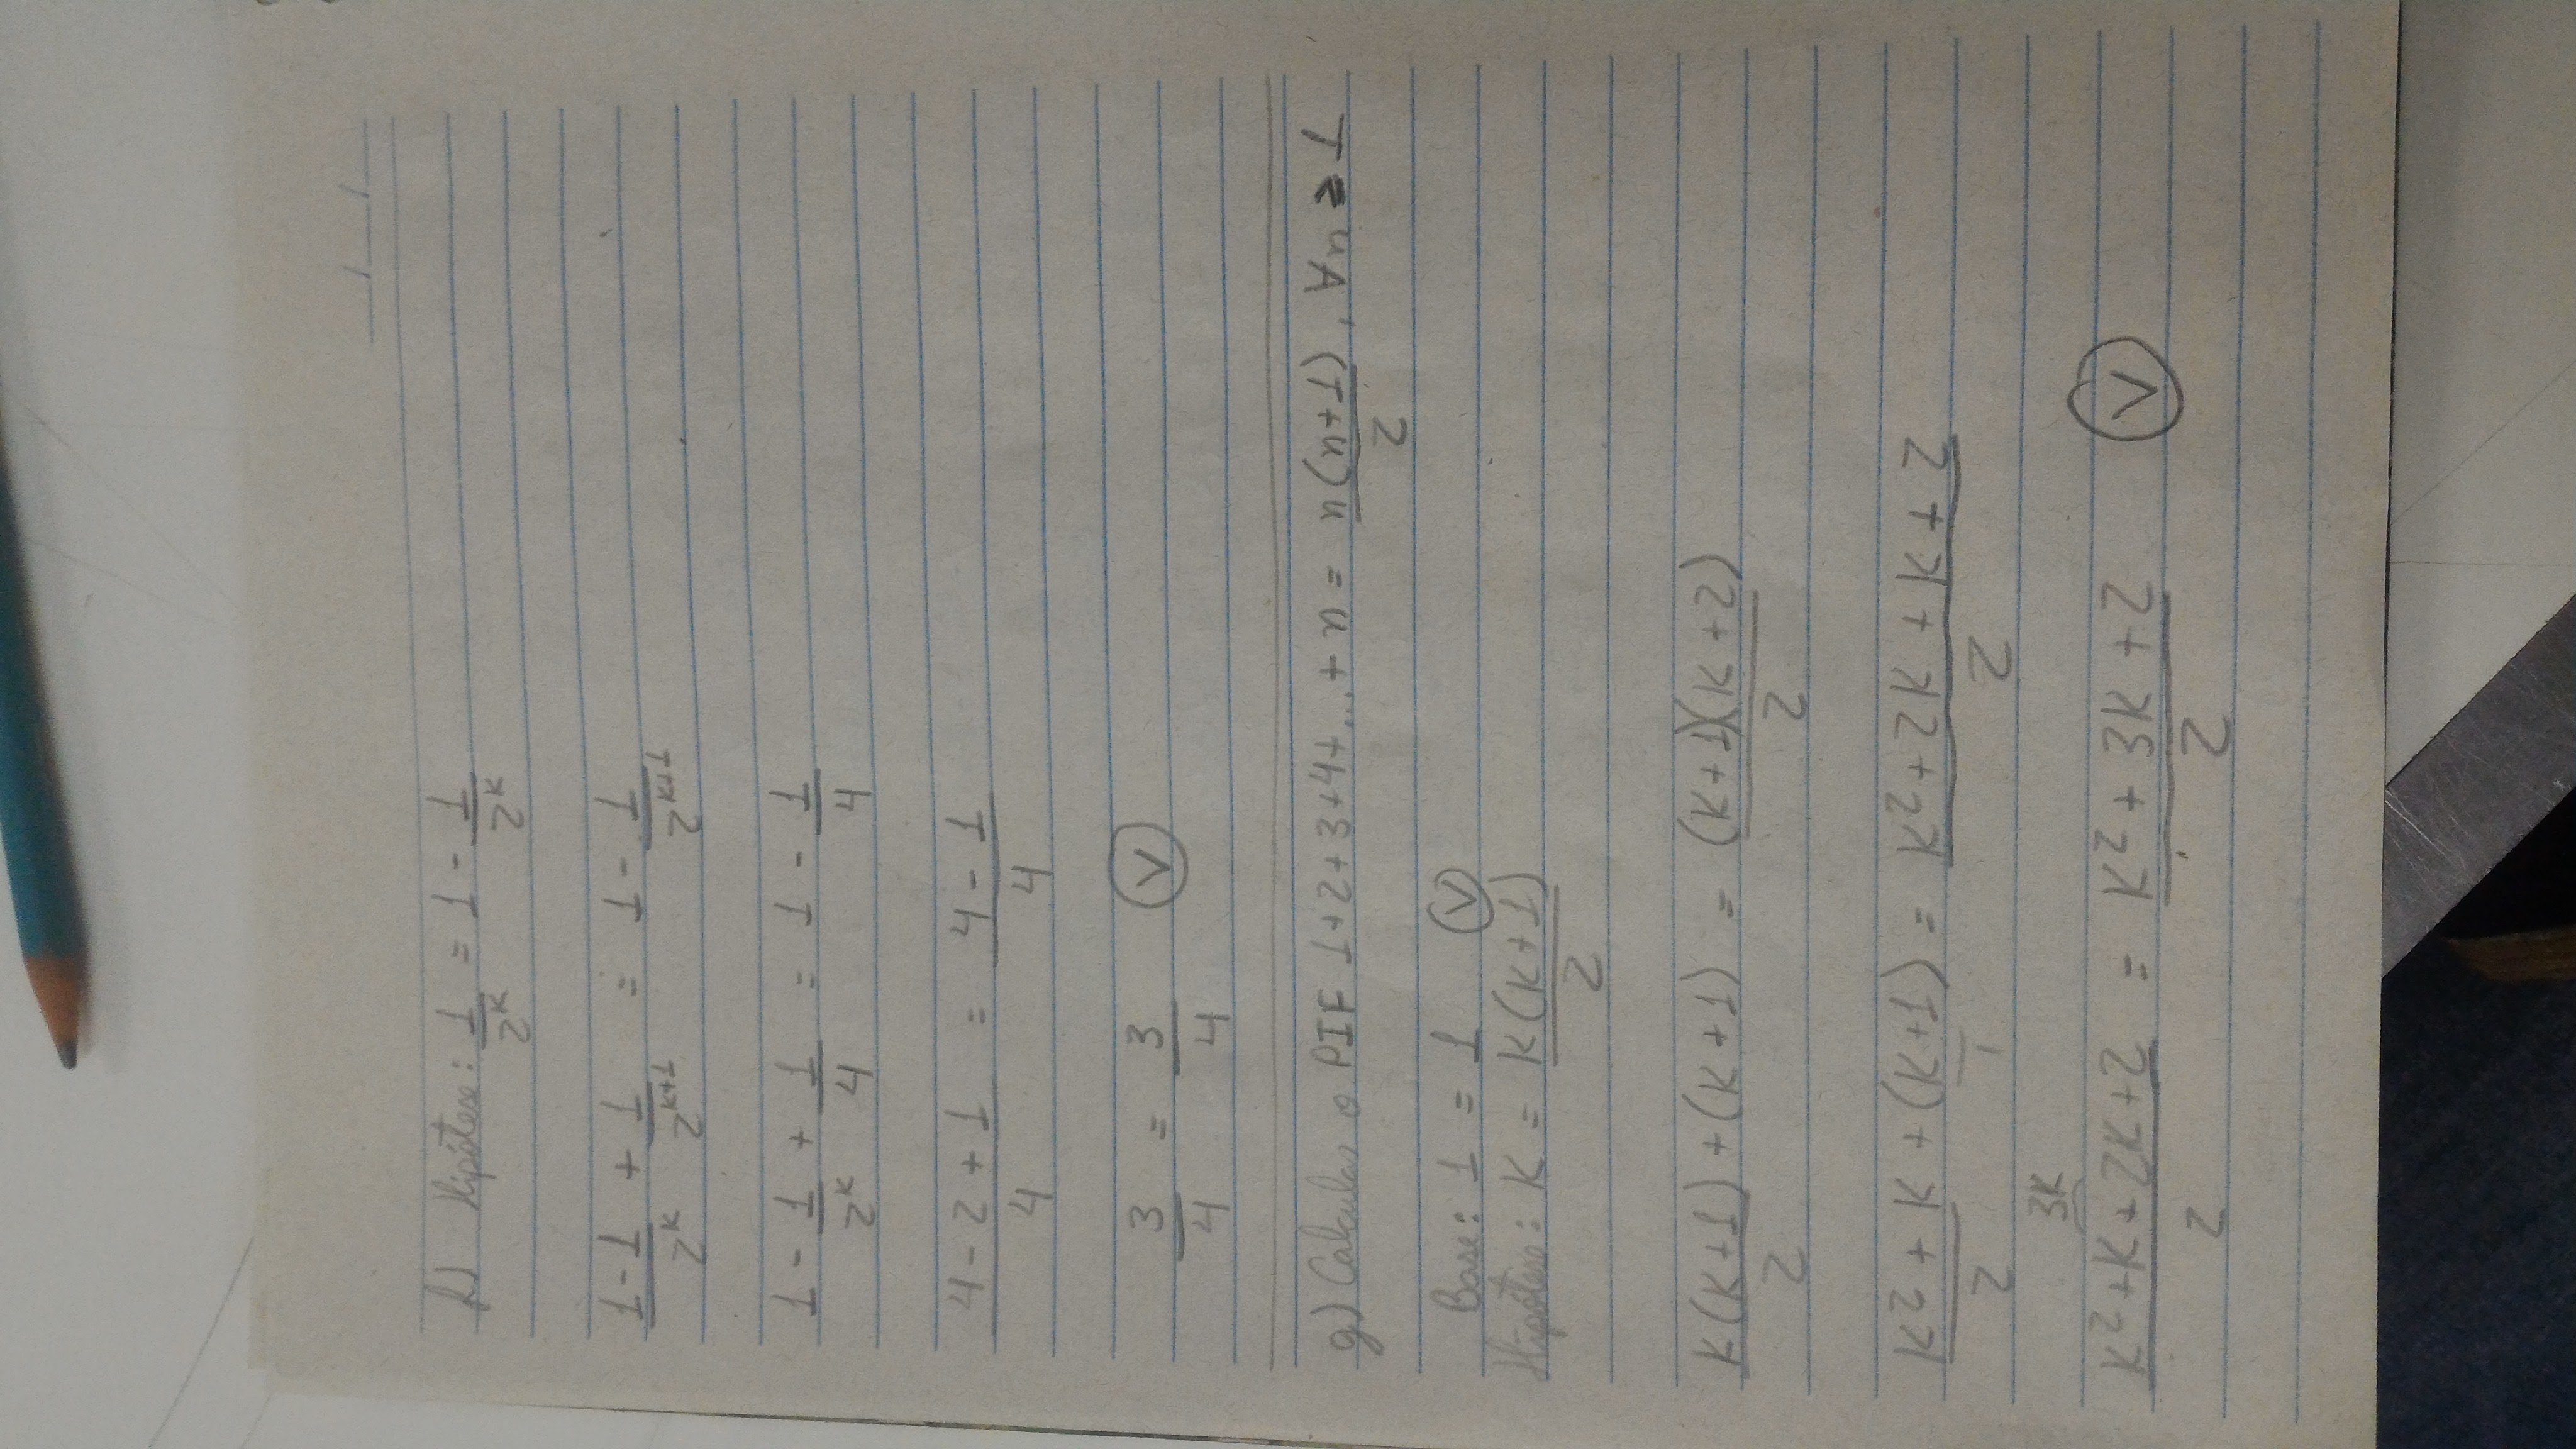 f) Hipótese: 1/2^k = 1 - 1/2^k
1-1/2^k + 1/2^(k+1) = 1 - 1/2^(k+1)
1 - 1/2^k + 1/4 = 1 - 1/4
4 - 2 + 1/4 = 4 - 1/4
3/4 = 3/4 V
g) Calcular o PIF 1+2+3+4+...+n = n(n+1)/2, ∀n ≥ 1
Base: 1 = 1 V
Hipótese: K = K(K+1)/2
K(K+1)/2 + (K+1) = (K+1)(K+2)/2
K²+K/2 + (K+1)/1 = K²+2K+K+2/2
3K
K²+K+2K+2/2 = K²+3K+2/2 V